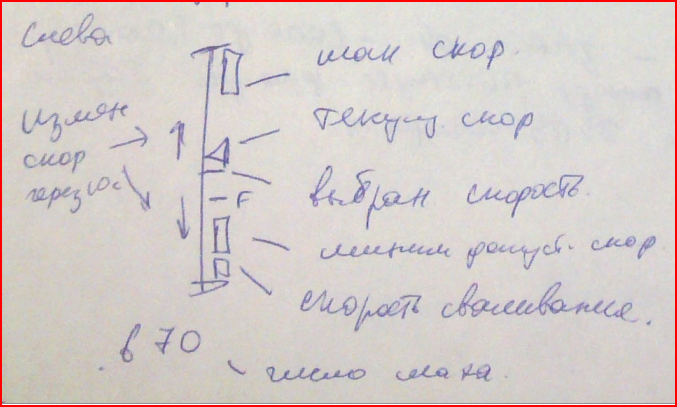 Слева
мак скор.
Измен скор через 10с
текущ скор
выбран скорость.
F
миним допуст. скор
скорость сваливания.
.670
число маха.